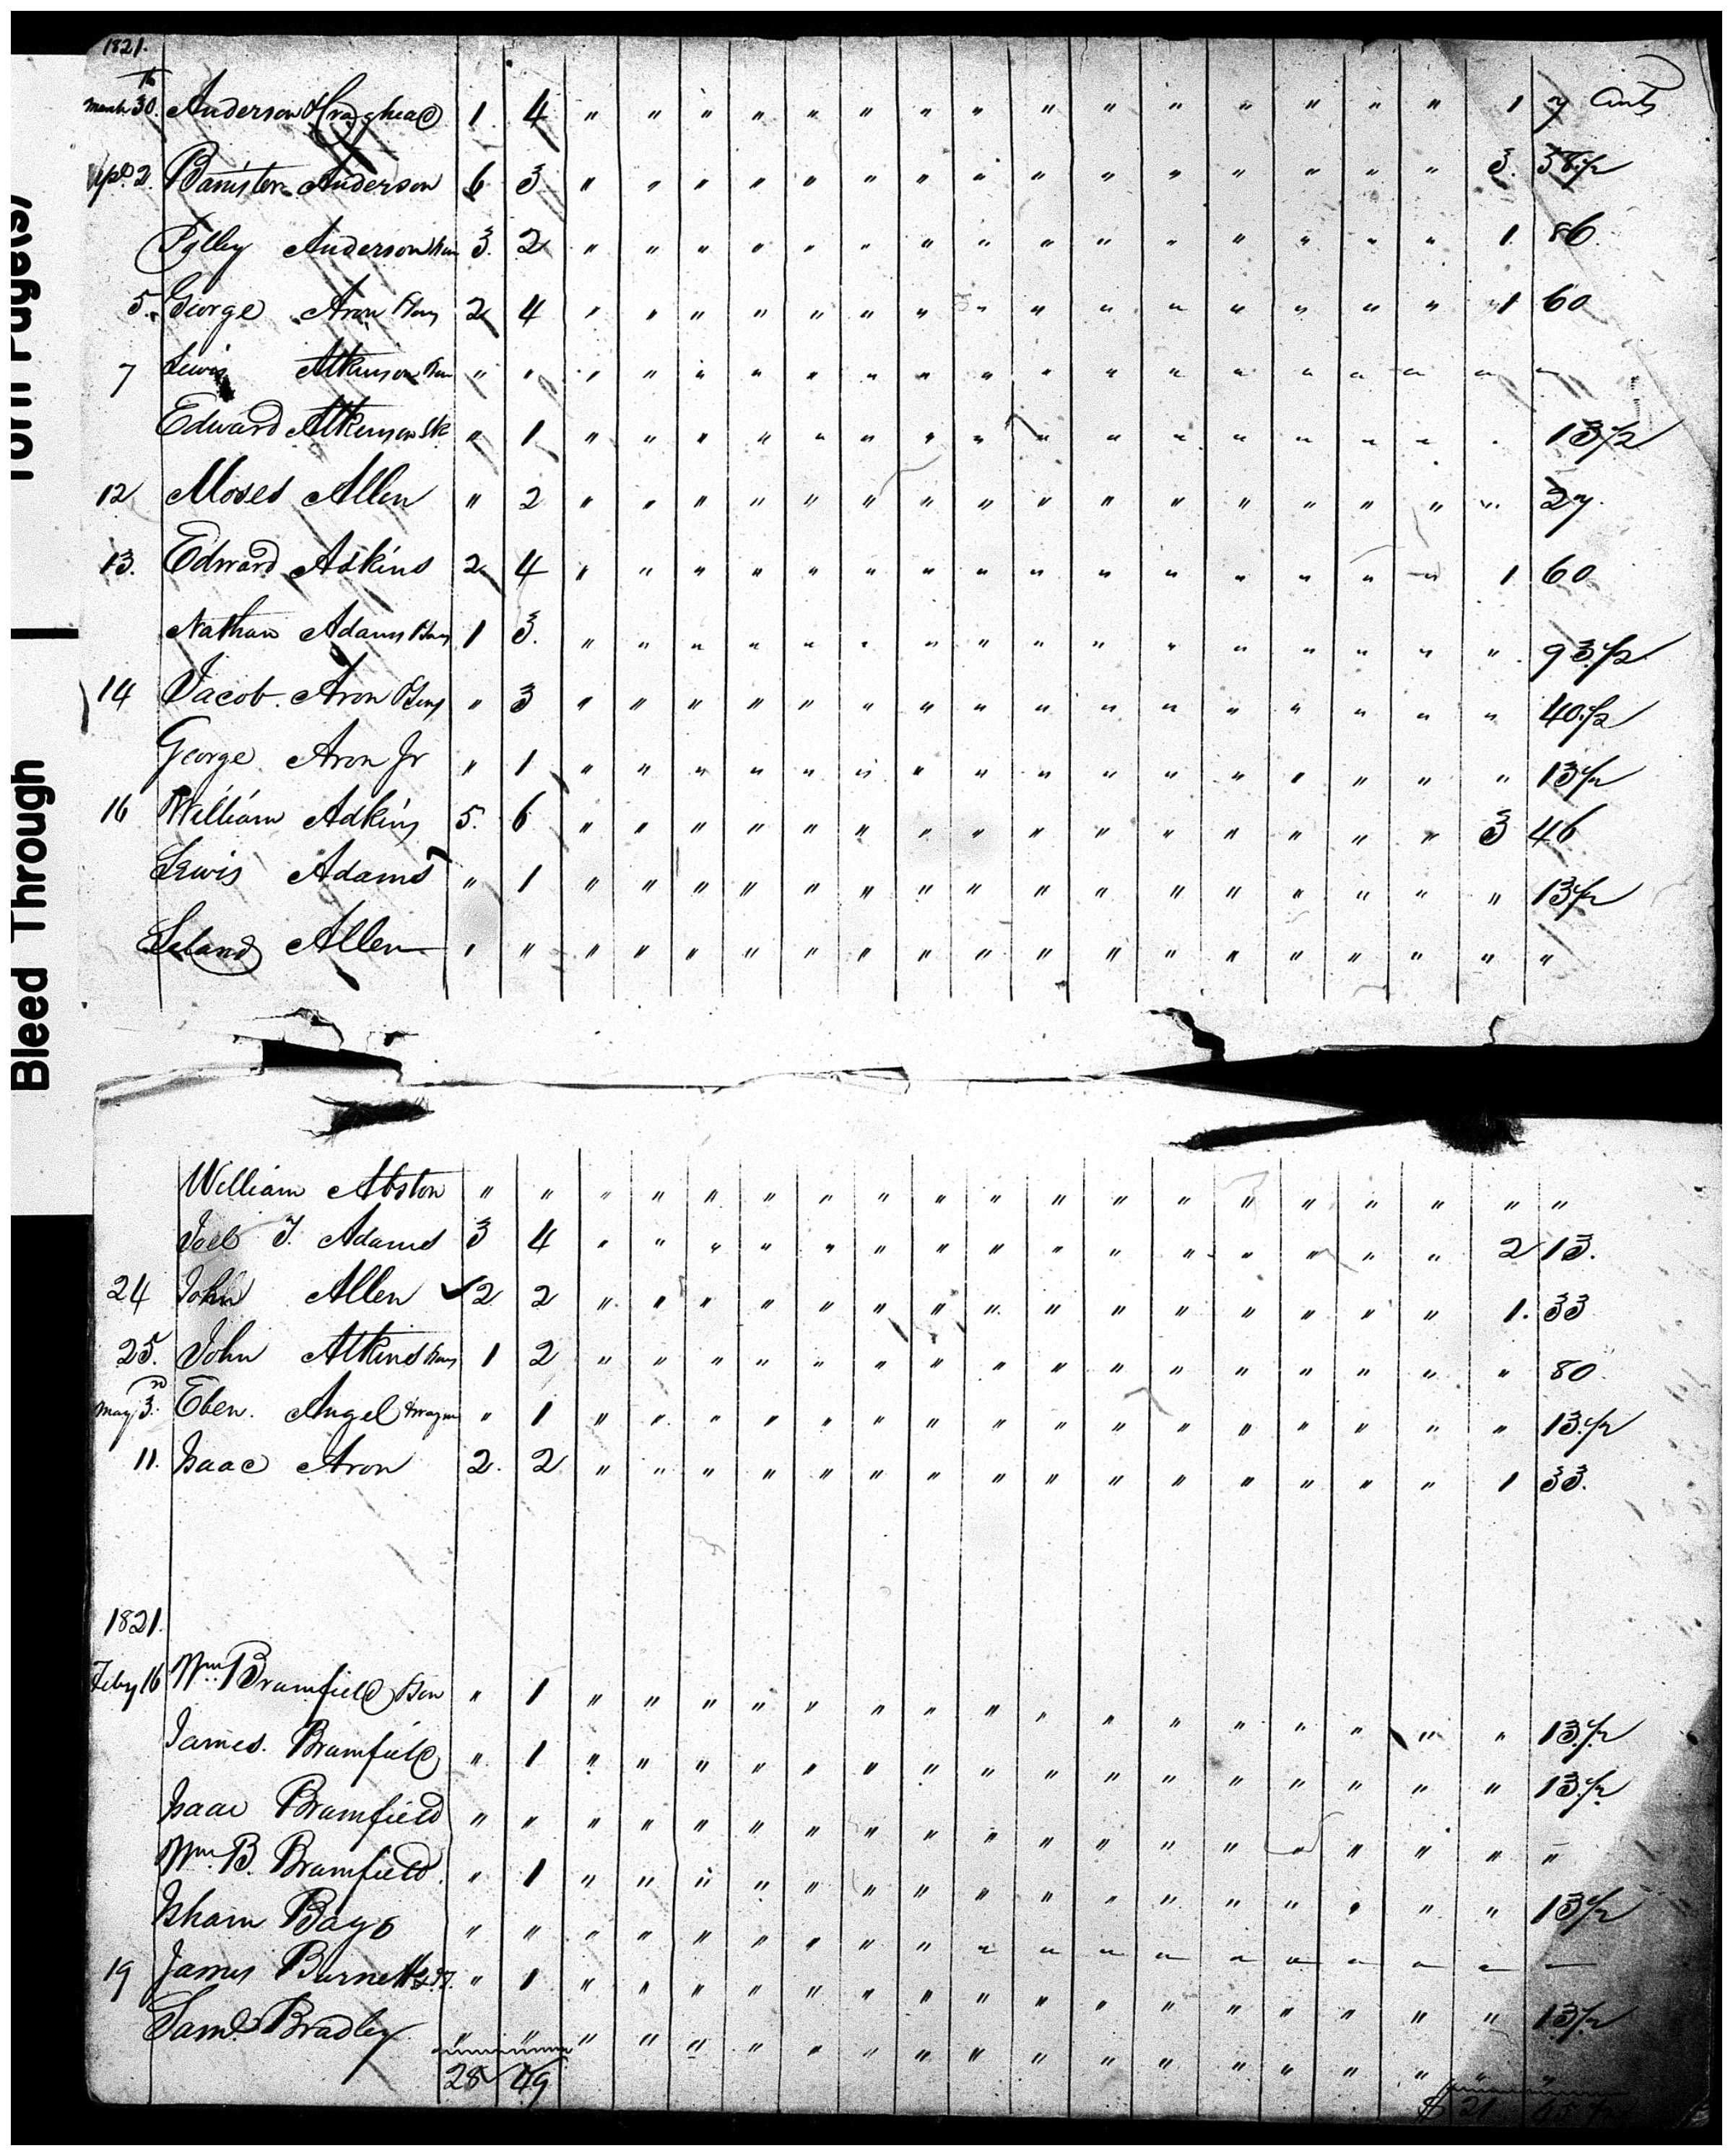 1821.
March 30th Anderson Craghead 1 4 " " " " " " " " " " " " " " " 1 7 Cents
Apl. 2. Banister Anderson 6 3 " " " " " " " " " " " " " " " 3. 58 1/2
Polley Anderson 3. 2 " " " " " " " " " " " " " " " 1. 86.
5. George Aron Ban 2 4 " " " " " " " " " " " " " " " 1 60
7 Lewis Atkinson Ban " " " " " " " " " " " " " " " " " " "
Edward Atkinson " 1 " " " " " " " " " " " " " " " " 13 1/2
12 Moses Allen " 2 " " " " " " " " " " " " " " " " 27.
13. Edward Adkins 2 4 " " " " " " " " " " " " " " " 1 60
Nathan Adams Ban 1 3. " " " " " " " " " " " " " " " " 93 1/2
14 Jacob Aron " 3 " " " " " " " " " " " " " " " " 40 1/2
George Aron Jr " 1 " " " " " " " " " " " " " " " " 13 1/2
16 William Adkins 5. 6 " " " " " " " " " " " " " " " 3 46
Lewis Adams " 1 " " " " " " " " " " " " " " " " 13 1/2
Leland Allen " " " " " " " " " " " " " " " " " " "
William Abston " " " " " " " " " " " " " " " " " " "
Joel T. Adams 3 4 " " " " " " " " " " " " " " " 2 13.
24 John Allen ✓ 2 2 " " " " " " " " " " " " " " " 1. 33
25. John Atkins Ban 1 2 " " " " " " " " " " " " " " " " 80
May 3rd Eben. Angel " 1 " " " " " " " " " " " " " " " " 13 1/2
11. Isaac Aron 2. 2 " " " " " " " " " " " " " " " 1 33.
1821.
Feby 16 Wm. Brumfield Ban " 1 " " " " " " " " " " " " " " " " 13 1/2
James Brumfield " 1 " " " " " " " " " " " " " " " " 13 1/2
Isaac Brumfield " " " " " " " " " " " " " " " " " " "
Wm. B. Brumfield " 1 " " " " " " " " " " " " " " " " 13 1/2
Isham Bays " " " " " " " " " " " " " " " " " " "
19 James Burnett " 1 " " " " " " " " " " " " " " " " 13 1/2
Saml. Bradley " " " " " " " " " " " " " " " " " " "
28 49 $ 21
Torn Page(s)
Bleed Through